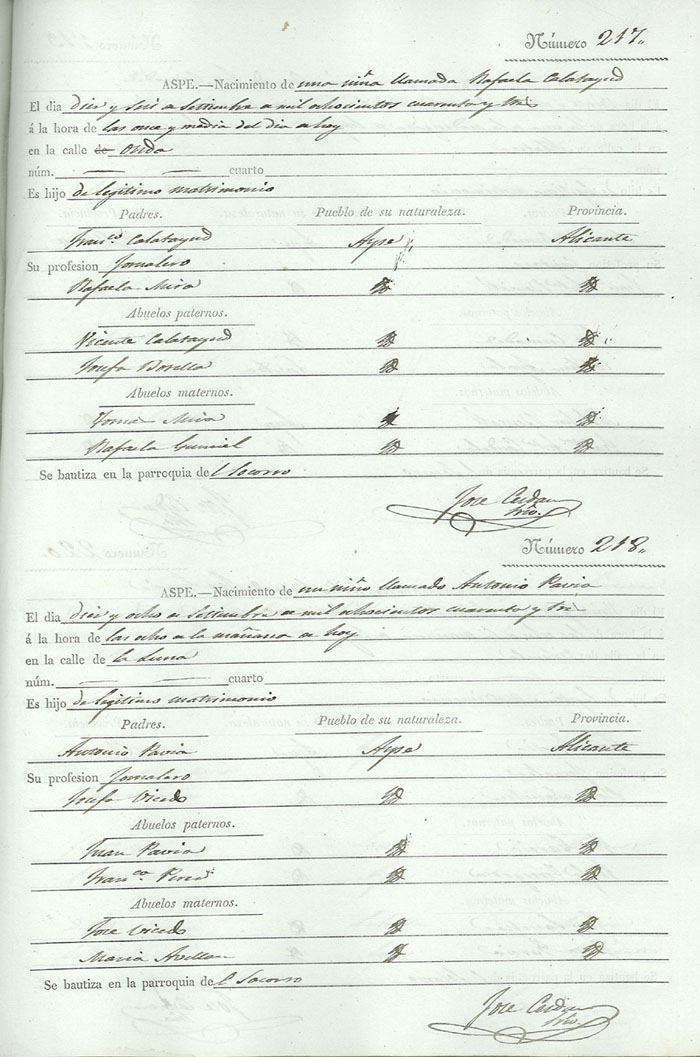 Número 217.
ASPE.—Nacimiento de una niña llamada Rafaela Calatayud
El dia diez y seis de Setiembre de mil ochocientos cuarenta y tres
á la hora de las once y media del dia de hoy
en la calle de Onda
núm. — — cuarto
Es hijo de legitimo matrimonio
Padres. Pueblo de su naturaleza. Provincia.
Franco Calatayud Aspe Alicante
Su profesion Jornalero
Rafaela Mira
Abuelos paternos.
Vicente Calatayud
Josefa
Abuelos maternos.
Mira
Rafaela
Se bautiza en la parroquia del Socorro
Jose Cerdan
Srio.
Número 218.
ASPE.—Nacimiento de un niño llamado Antonio Pavia
El dia diez y ocho de Setiembre de mil ochocientos cuarenta y tres
á la hora de las ocho de la mañana de hoy
en la calle de la Luna
núm. — — cuarto
Es hijo de legitimo matrimonio
Padres. Pueblo de su naturaleza. Provincia.
Antonio Pavia Aspe Alicante
Su profesion Jornalero
Josefa Vicedo
Abuelos paternos.
Juan Pavia
Franca
Abuelos maternos.
Jose Vicedo
Maria Avellan
Se bautiza en la parroquia del Socorro
Jose Cerdan
Srio.